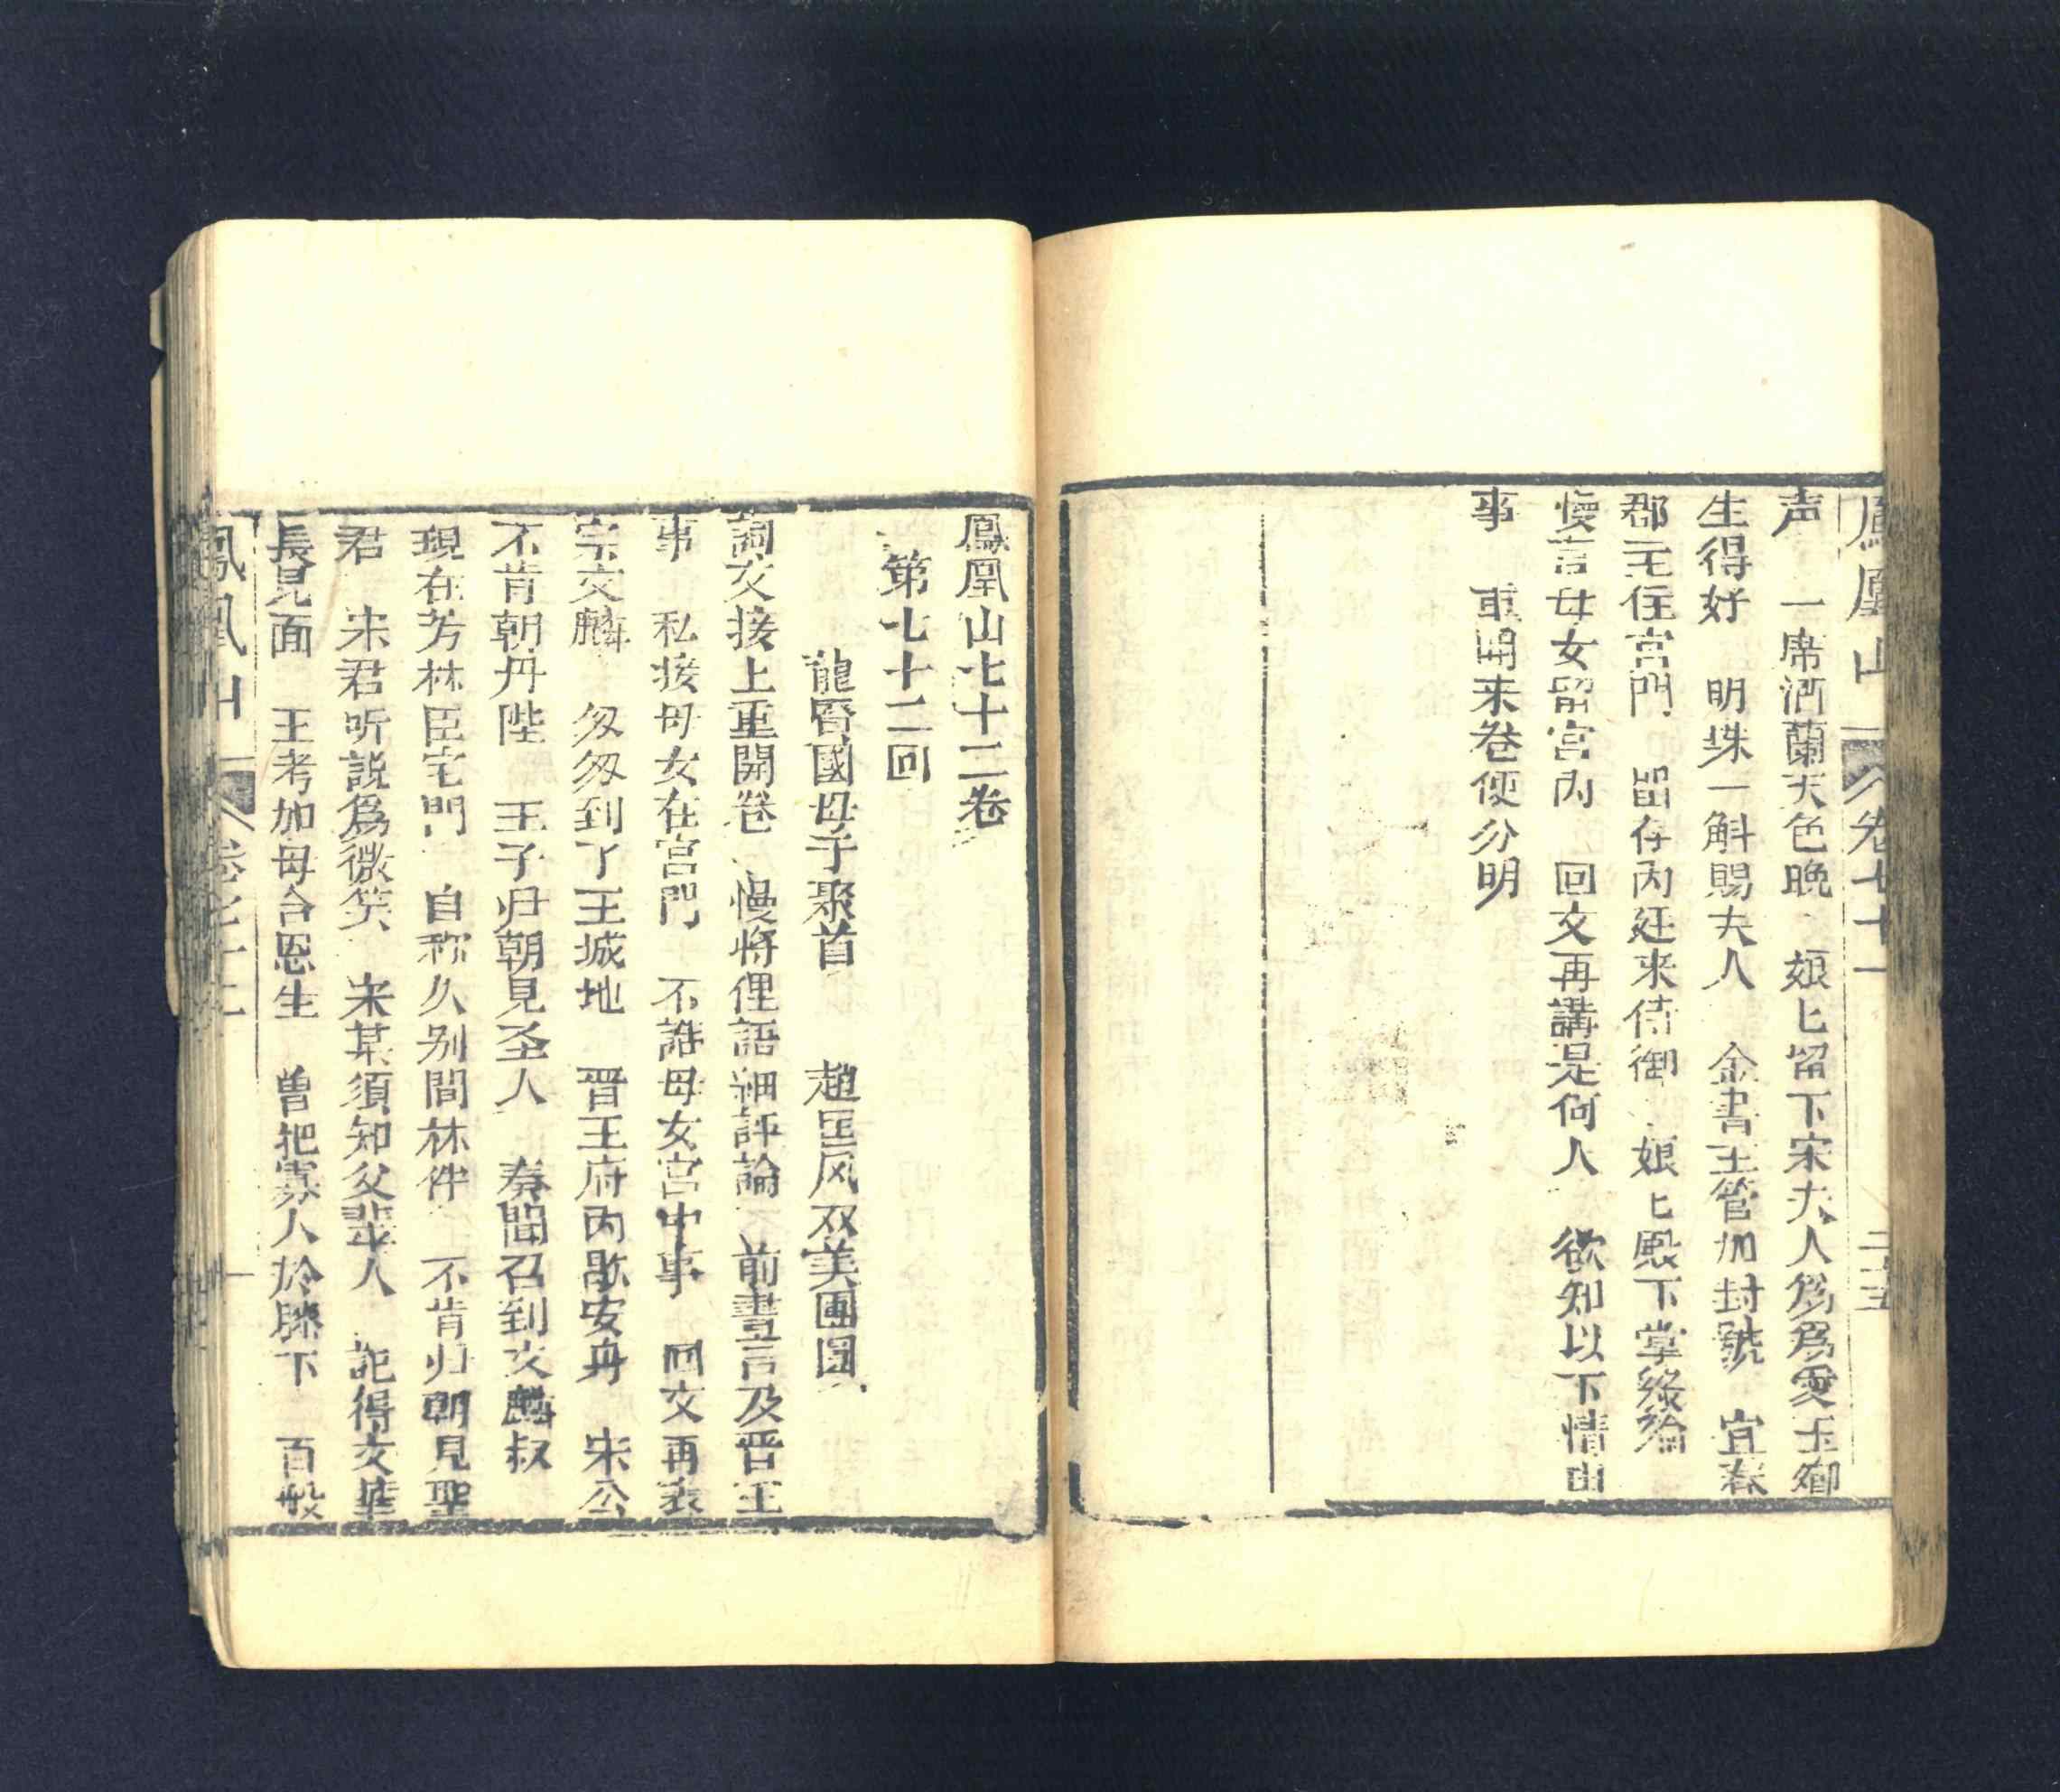 鳳凰山 卷七十一 二十五
声 一席酒蘭天色晚 娘匕留下宋夫人 為愛玉卿
生得好 明珠一斛賜夫人 金書玉管加封號 宜春
郡主住宮門 留存內廷来侍御 娘匕殿下掌絲綸
慢言母女留宮內 回文再講是何人 欲知以下情由
事 重開来卷便分明
鳳凰山七十二卷
第七十二回
龍唇國母子聚首 趙匡风双美團圓
詞文接上重開卷 慢將俚語細評論 前書言及晋王
事 私接母女在宮門 不誰母女宮中事 回文再表
宗文麟 匆匆到了王城地 晋王府內歇安身 宋公
不肯朝丹陛 王子归朝見圣人 奏聞召到文麟叔
現在芳林臣宅門 自称久别間林伴 不肯归朝見聖
君 宋君听説爲微笑 宋某須知父輩人 記得文華
長見面 王考加母合恩生 曾把寡人於膝下 百般
鳳凰山 卷七十二 一